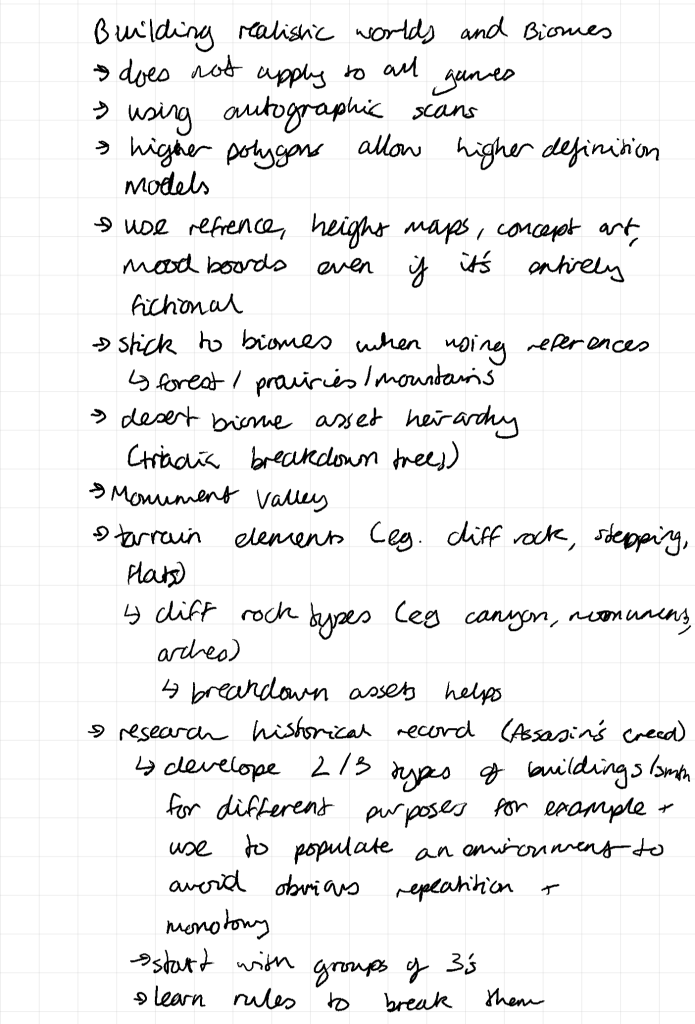 Building realistic worlds and Biomes
→ does not apply to all games
→ using autographic scans
→ higher polygons allow higher definition
models
→ use refrence, height maps, concept art,
mood boards even if it's entirely
fictional
→ stick to biomes when using references
↳ forest / prairies / mountains
→ desert biome asset heirarchy
(triadic breakdown trees)
→ Monument Valley
→ tarrain elements (eg. cliff rock, stepping,
flats)
↳ diff rock types (eg canyon, monumens,
arches)
↳ breakdown assets helps
→ research historical record (Assasin's creed)
↳ develope 2/3 types of buildings/smth
for different purposes for example +
use to populate an environment to
avoid obvious repeatition +
monotony
→ start with groups of 3's
→ learn rules to break them